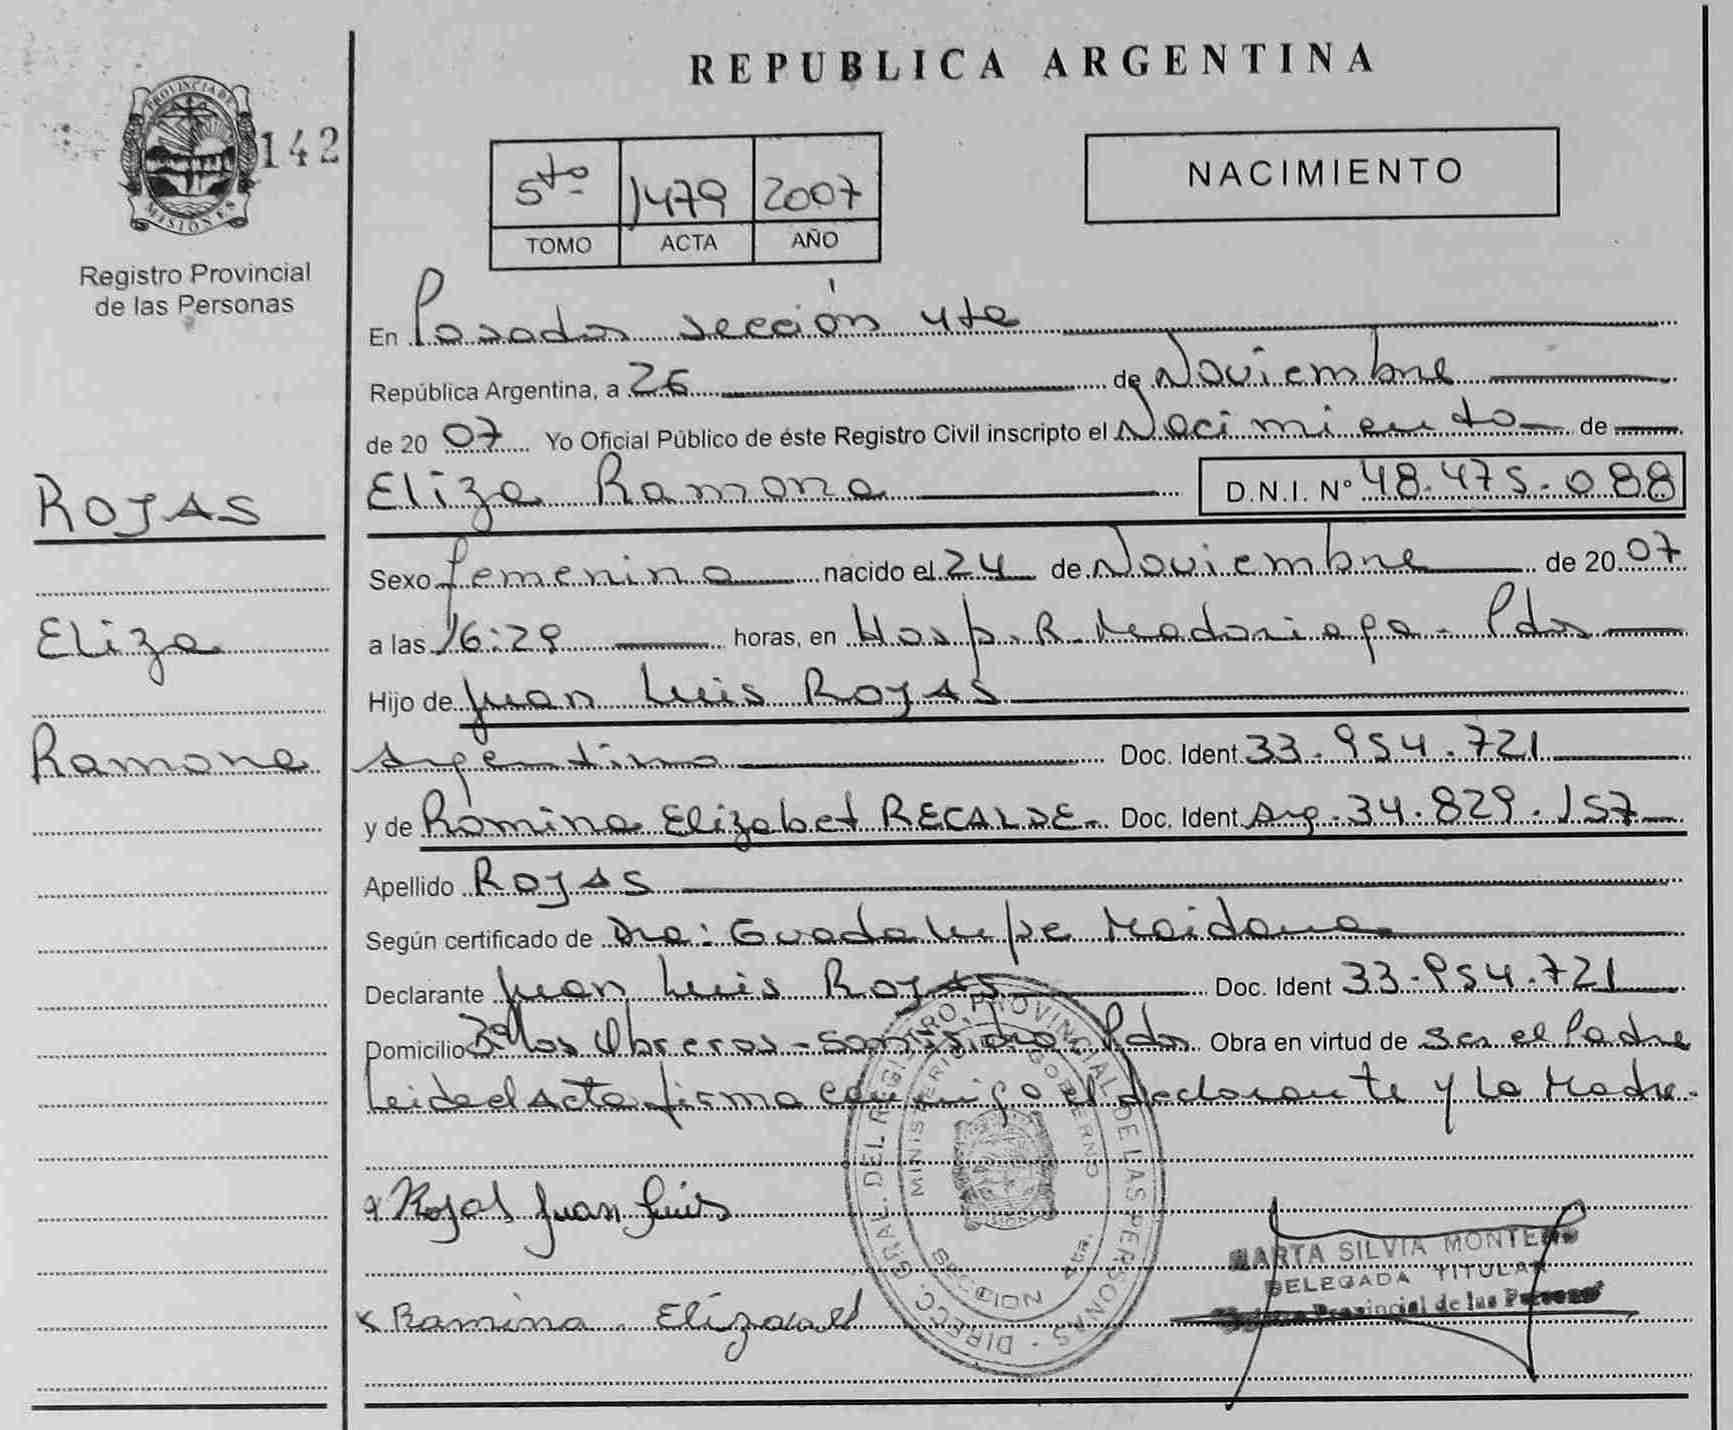 REPUBLICA ARGENTINA
PROVINCIA DE
MISIONES
142
Registro Provincial
de las Personas
5to 1479 2007
TOMO ACTA AÑO
NACIMIENTO
En Posadas sección 4ta
República Argentina, a 26 de Noviembre
de 2007 Yo Oficial Público de éste Registro Civil inscripto el Nacimiento de
Eliza Ramona D.N.I. Nº 48.475.088
ROJAS
Eliza
Ramona
Sexo femenino nacido el 24 de Noviembre de 2007
a las 16:29 horas, en Hosp. R. Madariaga - Pdas
Hijo de Juan Luis ROJAS
Argentino Doc. Ident 33.954.721
y de Romina Elizabet RECALDE- Doc. Ident Arg. 34.829.157
Apellido ROJAS
Según certificado de Dra: Guadalupe Maidana
Declarante Juan Luis ROJAS Doc. Ident 33.954.721
Domicilio los Obreros - San Isidro - Pdas Obra en virtud de ser el Padre
Leida el Acta firma conmigo el declarante y la Madre.
x Rojas Juan Luis
x Ramina Elizabet
DIREC. GRAL. DEL REGISTRO PROVINCIAL DE LAS PERSONAS
MINISTERIO GOBIERNO
SECCION 4ta.
MARTA SILVIA MONTERO
DELEGADA TITULAR
Provincial de las Personas